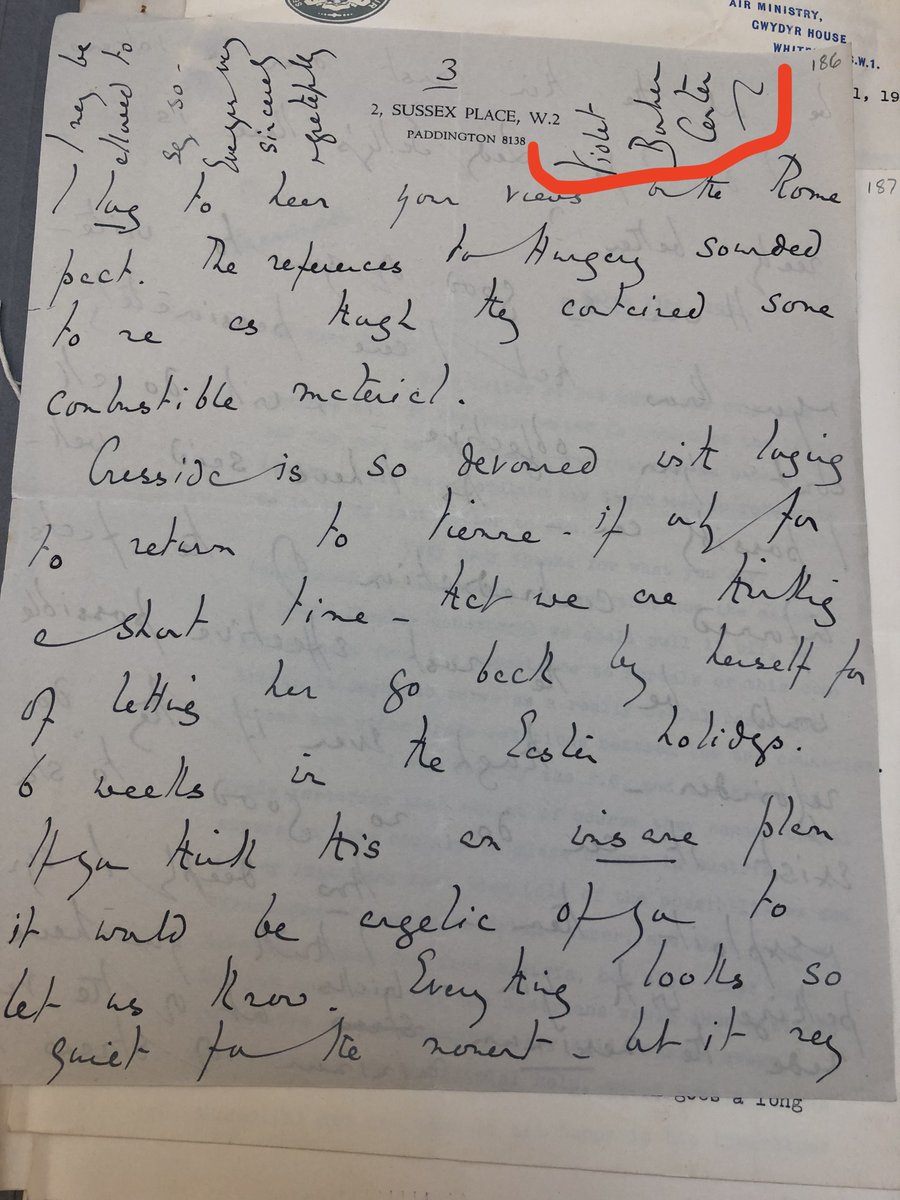 AIR MINISTRY,
GWYDYR HOUSE,
S.W.1.
186
187
3
2, SUSSEX PLACE, W.2
PADDINGTON 8138
I long to hear your views on the Rome
pact. The references to Hungary sounded
to me as though they contained some
combustible material.
Cressida is so devoured with longing
to return to Vienna - if only for
a short time - that we are thinking
of letting her go back by herself for
6 weeks in the Easter holidays.
If you think this an insane plan
it would be angelic of you to
let us know. Everything looks so
quiet for the moment - but it may
I may be
allowed to
say so -
Ever yrs very
sincerely
gratefully
Violet
Bonham
Carter
goes a long